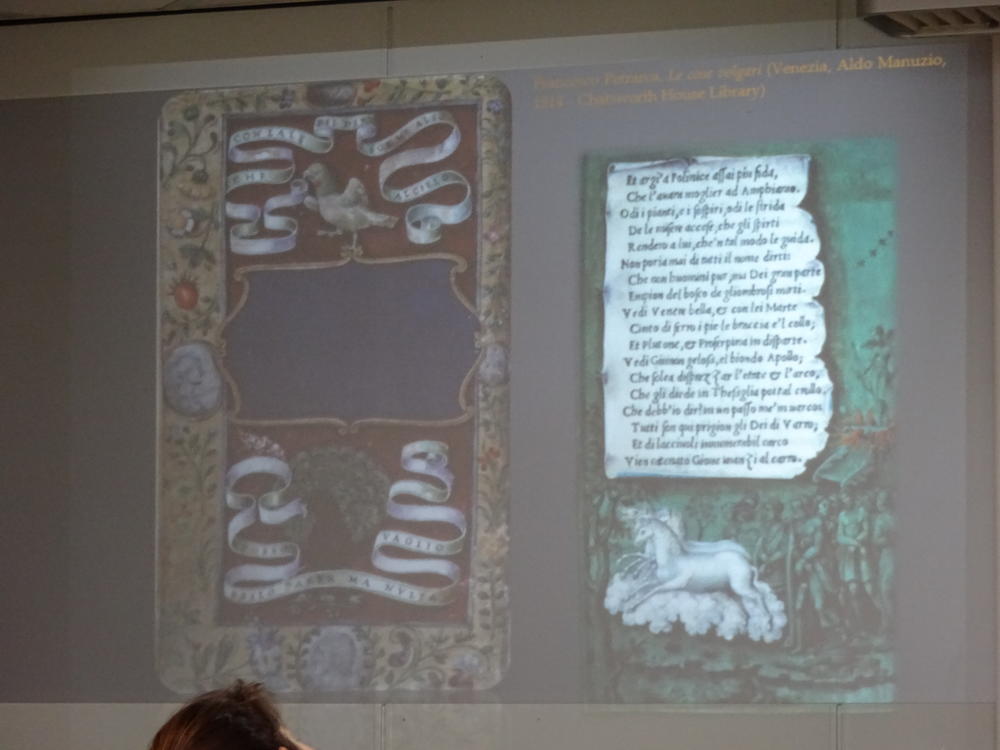 Francesco Petrarca, Le cose volgari (Venezia, Aldo Manuzio,
1514 - Chatsworth House Library)
CON L'ALE
CHE
AL CIELO
VAGLIO
PARER MA NVLLA
Et argi'a Polinice assai piu fida,
Che l'auara moglier ad Amphiarao.
Odi i pianti, e i sospiri, odi le strida
De le misere accese, che gli spirti
Rendero a lui, che'n tal modo le guida.
Non poria mai di tutti il nome dirti
Che non huomini pur, ma Dei gran parte
Empion del bosco de gliombrosi mirti.
Vedi Venere bella, et con lei Marte
Cinto di ferro i pie le braccia e'l collo;
Et Plutone, et Proserpina in disparte.
Vedi Giunon gelosa, el biondo Apollo;
Che solea l'etate et l'arco,
Che gli diede in Thessaglia poi tal crollo.
Che debb'io dir? in un passo me'n uarco:
Tutti son qui prigion gli Dei di Varro;
Et di lacciuoli innumerabil carco
Vien catenato Gioue inanzi al carro.